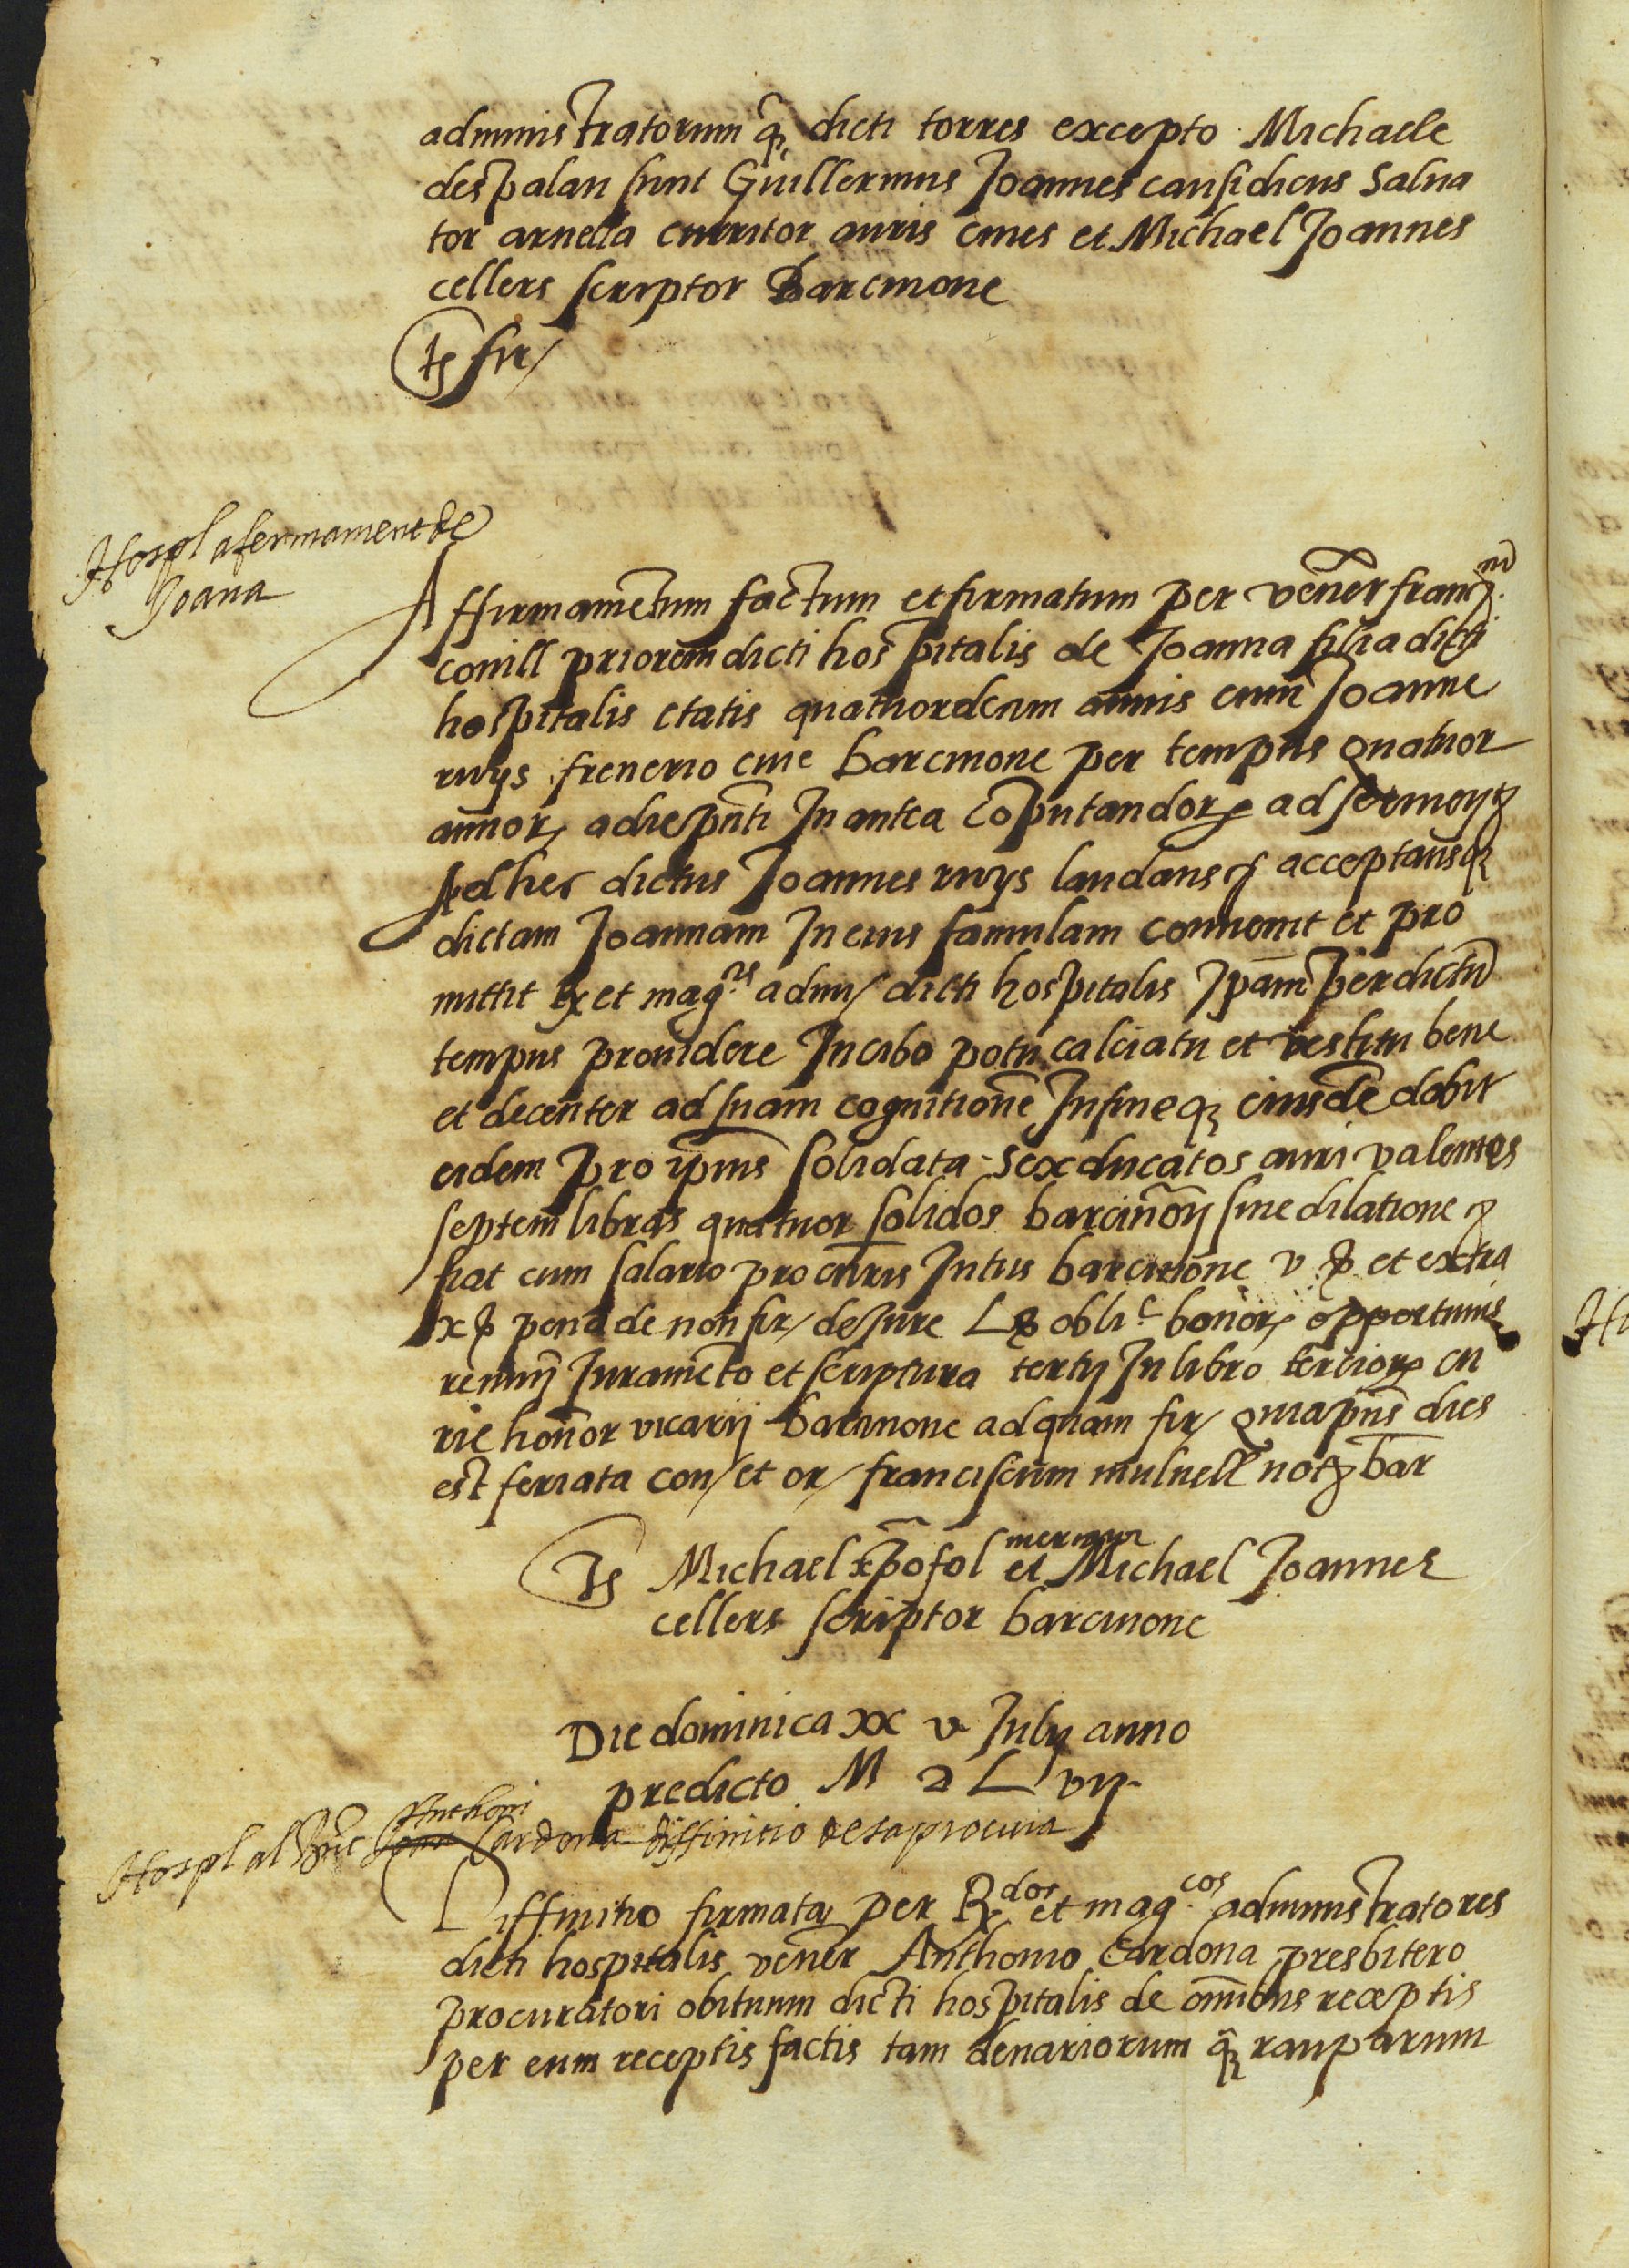 administratorum q̃ dicti torres excepto Michaele
despalau sunt Guillermus Joannes causidicus Salua
tor arnella curritor auris ciues et Michael Joannes
cellers scriptor Barcinone
Ts fir/
Hospl afermament de
Joana
Affirmamentum factum et firmatum per vener franm
conill priorem dicti hospitalis de Joanna filia dicti
hospitalis etatis quatuordecim annis cum Joanne
ruys frenerio ciue barcinone per tempus quatuor
annor adiepñti In antea Coputandor ad
Ad hec dictus Joannes ruys laudans acceptansq
dictam Joannam In eius famulam conuenit et pro
mittit Rx et magcis admi/ dicti hospitalis Ipam per dictu
tempus prouidere In cibo potu calciatu et vestitu bene
et decenter ad suam cognitione In fine q eiusde dabit
eidem pro ipius solidata sex ducatos auri valentes
septem libras quatuor solidos barcinoñ sine dilatione
fiat cum salario procuris Intus barcinone v ẞ et extra
x ẞ pena de non fir/ de Jure L ẞ oblic bonor opportunis
renunij Juramēto et scriptura tertij In libro tercior cu
rie honor vicarij barcinone ad quam fir/ quia pñs dies
est feriata con/ et or/ franciscum mulnell not bar
Ts Michael xpofol mercator et Michael Joannes
cellers scriptor barcinone
Die dominica xx v Julij anno
predicto M D L vij
Hospl al Joan Anthoni Cardona diffinitio de sa procura
Diffinitio firmata per Rx dos et mag cos administratores
dicti hospitalis vener Anthonio Cardona presbitero
procuratori obituum dicti hospitalis de omibus receptis
per eum receptis factis tam denariorum q̃ rauparum